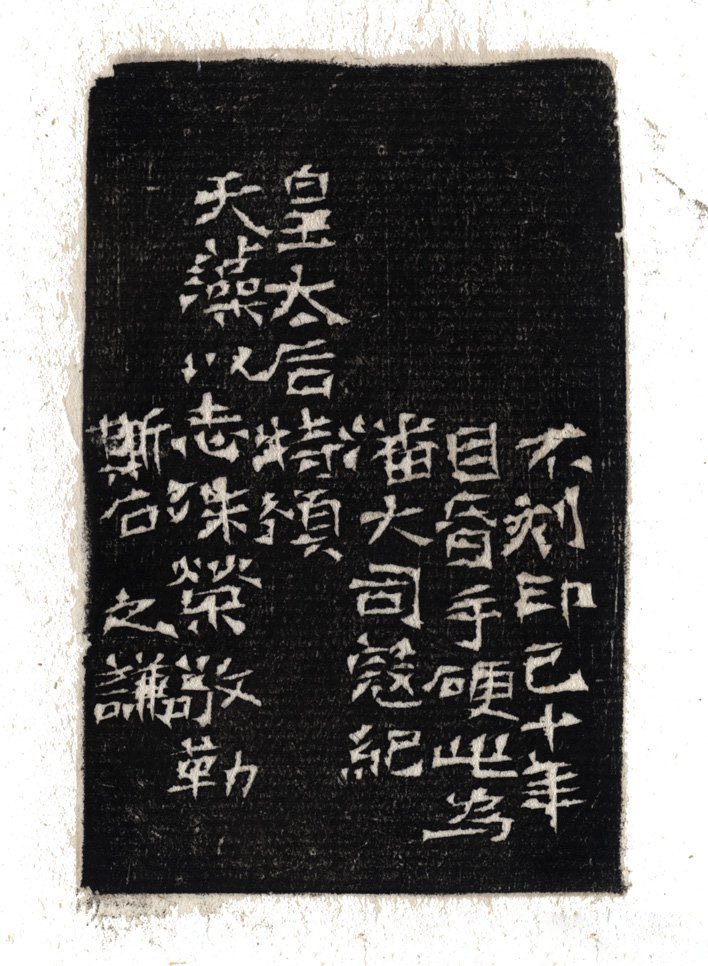 不刻印已十年
目昏手硬此為
潘大司寇紀
皇太后特頒
天藻以志殊榮敬勒
斯石 之謙